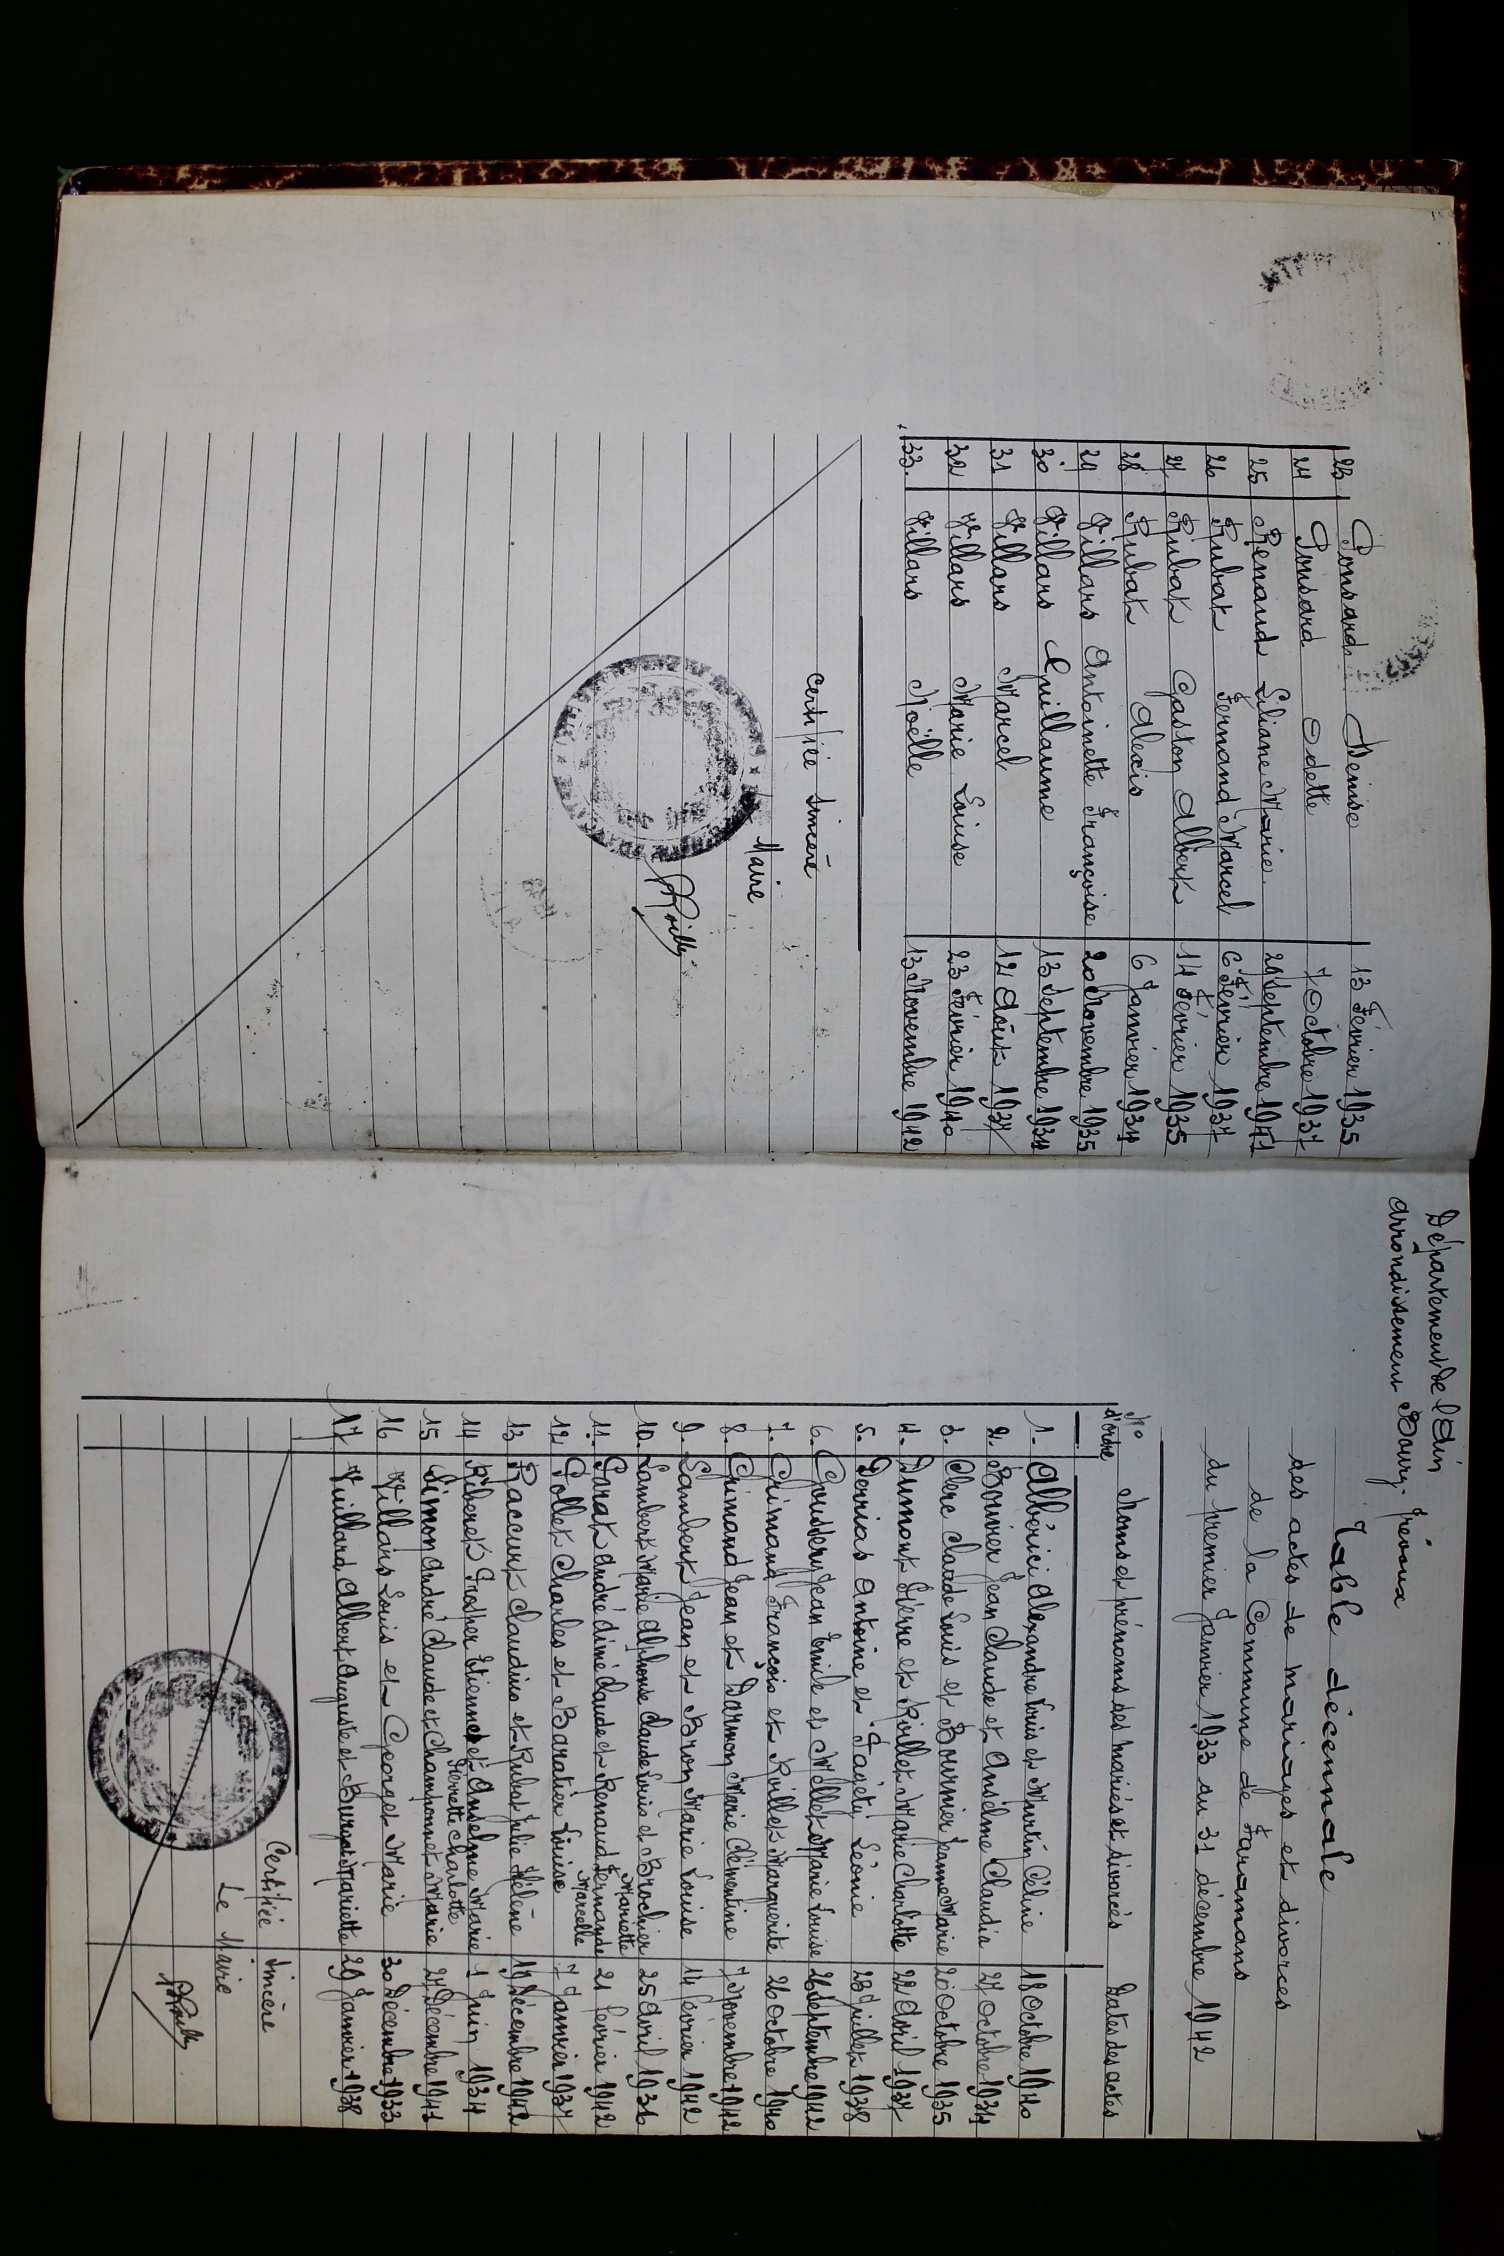 23 Ponsard Denise 13 Février 1935
24 Ponsard Odette 7 Octobre 1937
25 Renaud Liliane Marie 29 Septembre 1941
26 Rubat Fernand Marcel 6 Février 1937
27 Rubat Gaston Albert 14 Février 1935
28 Rubat Alexis 6 Janvier 1934
29 Villars Antoinette Françoise 20 Novembre 1935
30 Villars Guillaume 13 Septembre 1934
31 Villars Marcel 12 Août 1937
32 Villars Marie Louise 23 Février 1940
33. Villars Noëlle 13 Novembre 1942
Certifiée sincère
Maire
Département de l'Ain
Arrondissement Bourg - Trévoux
Table décennale
des actes de mariages et divorces
de la Commune de Faramans
du premier Janvier 1933 au 31 décembre 1942
N° d'ordre Noms et prénoms des mariés et divorcés Dates des actes
1. Albérici Alexandre Louis et Martin Céline 18 Octobre 1940
2. Bouvier Jean Claude et Anselme Claudia 27 Octobre 1934
3. Clerc Claude Louis et Bournier Jeanne Marie 20 Octobre 1935
4. Dumont Pierre et Rivillet Marie Charlotte 22 Avril 1937
5. Derrias Antoine et Fagety Léonie 23 Juillet 1938
6. Jean Emile et Millet Marie Louise 26 Septembre 1942
7. Grimand François et Marguerite 26 Octobre 1940
8. Grimand Jean et Darmon Marie Clémentine 7 Novembre 1942
9. Lambert Jean et Bron Marie Louise 14 février 1942
10. Lambert Marie Alphonse Claude Louis et Brochier Mariette 25 Avril 1936
11. André Claude et Renaud Fernande Marcelle 21 février 1942
12 Pollet Charles et Baratier Louise 7 Janvier 1937
13 Raccurt Claudius et Rubat Julie Hélène 19 Décembre 1942
14 Prosper Etienne et Anselme Marie Pierrette Charlotte 1 Juin 1934
15 Simon André Claude et Champonnet Marie 27 Décembre 1941
16 Villars Louis et Georget Marie 30 Décembre 1933
17 Vuillard Albert Auguste et Mariette 29 Janvier 1938
Certifiée sincère
Le Maire